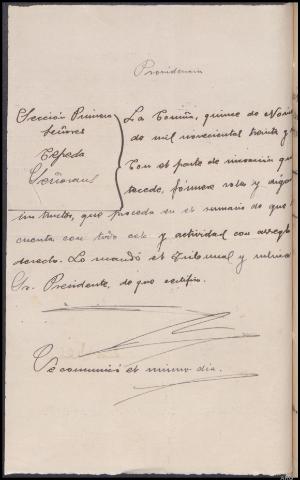 Providencia
Sección Primera
Señores
Cepeda
La Coruña, quince de Novi
de mil novecientos treinta y
Con el parte de incoación que
tecede, fórmese rollo y diga
instructor, que proceda en el sumario de que
cuenta con todo celo y actividad con arreglo
derecho. Lo mandó el Tribunal y rubrica
Sr. Presidente, de que certifico.
Se comunicó el mismo dia.